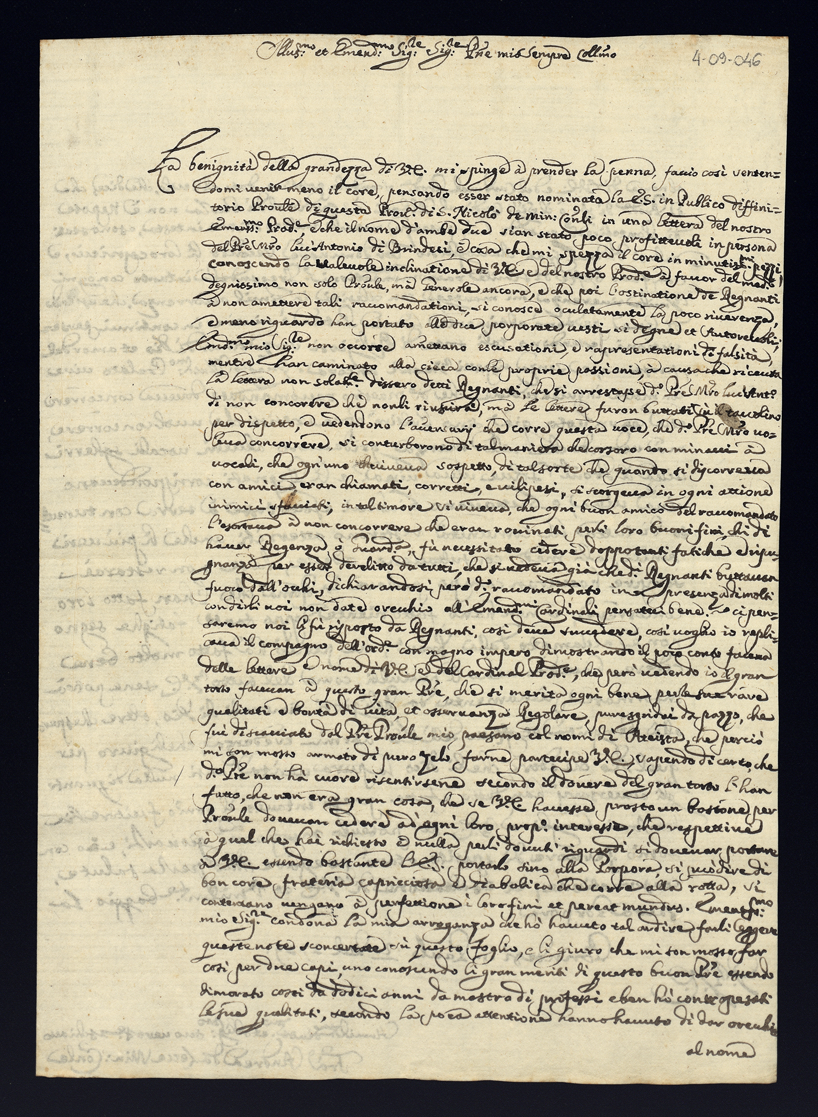 Illus.mo et Emend.mo Sig.re Sig.re Pñe mio Sempre Coll.mo
4-09-046
La benignità della grandezza di V.E. mi spinge à prender la penna, facio così senten=
domi venir meno il core, pensando esser stato nominata la E.S. in Publico diffini=
torio Proũle di questa Prov.a di S. Nicolò de Min: Coñli in una lettera del nostro
Emen.mo Prod.e è che il nome d'ambe due sian stato poco profittevoli in persona
del Pre Mro Luc'Antonio di Brindesi, è cosa che mi spezza il core in minutiss.mi pezzi
conoscendo la valevole inclinatione di V.E. e del nostro Prod.e à favor del med.o
degnissimo non solo Proũle, mà Generole ancora, e che poi l'ostinatione de Regnanti
à non amettere tali raccomandationi, si conosce oculatamente la poco riverenza,
è meno riguardo han portato alle dice porporate vesti si degne et Autorevoli;
Emd.mo mio Sig.re non occorre amettano escusationi, è rapresentationi de falsità,
mentre han caminato alla cieca con le proprie passioni, à causa che ricevuta
la lettera non sola.te dissero detti Regnanti, che si arrestasse d.o Pre Mro Luc'Ant.o
di non concorrere che non li riusciva, mà le lettere furon buttati in il tavolino
per dispetto, è vedendo l'aversarij che corre questa voce, che d.o Pre Mro vo=
leva concorrere, si conturborono di tal maniera che corsoro con minacci à
vocali, che ogn'uno viveva sospetto, di tal sorte che quanto si discorreva
con amici eran chiamati, corretti, e vilipesi, si scorgeva in ogni attione
inimici sfacciati, in tal timore si viveva, che ogni buon amico del raccomandato
l'esortava à non concorrere che eran rovinati per li loro buoni fini, chi di
haver Regenza ò Guard.a, fù necessitato cedere doppo tanti fatiche è ripu=
gnanze per esser derelitto da tutti, che si vedeva già che di Regnanti buttavan
fuoco dall'ochi, dichiarandosi però di raccomandato in presenza di molti
con dirli voi non date orechio all'Emend.mi Cardinali pensatevi bene. Ce ci pen=
saremo noi li fù risposto da Regnanti, così deve succedere, così voglio io repli=
cava il compagno dell'ord.e con magno impero dimostrando il poco conto faceva
delle lettere è nome di V.E. e del Cardinal Prod.e, che però vedendo io il gran
torto facevan à questo gran Pre, che si merita ogni bene per le sue rare
qualitati è bontà di vita, et osservanza Regolare, pure gridai da pazzo, che
fui discacciato dal Pre Proũle mio paesano col nomi di Ateista, che perciò
mi son mosso armato di puro zelo farne partecipe V.E. sapendo di certo, che
d.o Pre non hà cuore risentirsene secondo il dovere del gran torto l'han
fatto, che non era gran cosa, che se V.E. havesse prosto un bastone per
Proũle dovevan cedere ad ogni loro prop.o interesse, che respettive
à quel che hai richiesto è nulla per li dovuti riguardi si dovevan portare
à V.E. essendo bastante l'E.S. portarlo sino alla Porpora, si può dire di
bon core frateria capricciosa è diabolica che corre alla rotta, si
contentano vengano à perfettione i lor ofini et pereat mundus. Ement.mo
mio Sig.re condona la mia arroganza che hò havuto tal ardire farli leggere
queste note sconcertate sù questo foglio, e li giuro che mi son mosso far
così per due capi, uno conoscendo li gran meriti di questo buon Pre essendo
dimorato costi da dodici anni da mastro di professi e ben hò contrapesati
le sue qualitati, secondo la poca attentione hanno havuto di dar orechi
al nome